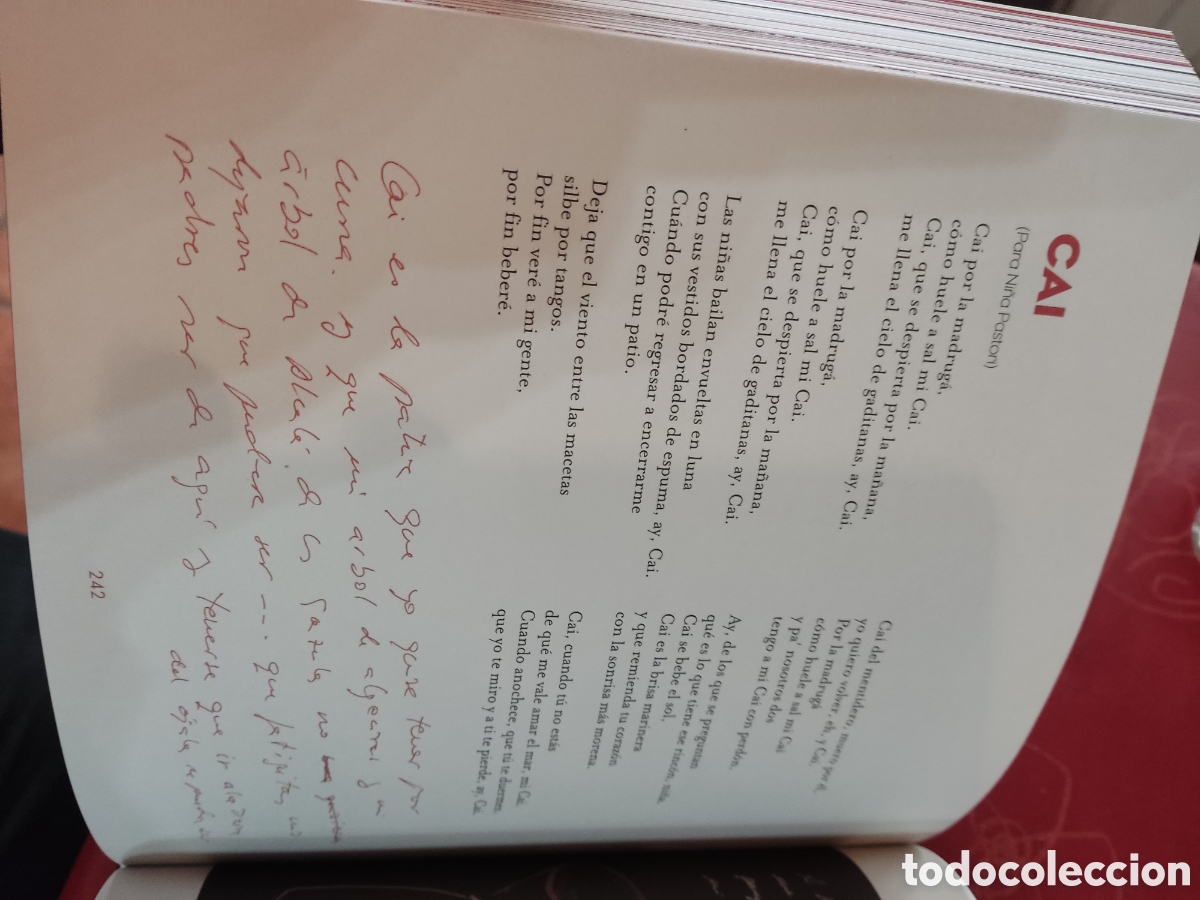 CAI
(Para Niña Pastori)
Cai por la madrugá,
cómo huele a sal mi Cai.
Cai, que se despierta por la mañana,
me llena el cielo de gaditanas, ay, Cai.
Cai por la madrugá,
cómo huele a sal mi Cai.
Cai, que se despierta por la mañana,
me llena el cielo de gaditanas, ay, Cai.
Las niñas bailan envueltas en luna
con sus vestidos bordados de espuma, ay, Cai.
Cuándo podré regresar a encerrarme
contigo en un patio.
Deja que el viento entre las macetas
silbe por tangos.
Por fin veré a mi gente,
por fin beberé.
Cai del mentidero, muero por él,
yo quiero volver, eh, y Cai,
Por la madrugá
cómo huele a sal mi Cai
y pa' nosotros dos
tengo a mi Cai con perdón.
Ay, de los que se preguntan
qué es lo que tiene ese rincón, niña,
Cai se bebe el sol,
Cai es la brisa marinera
y que remienda tu corazón
con la sonrisa más morena.
Cai, cuando tú no estás
de qué me vale amar el mar, mi Cai.
Cuando anochece, que tú te duermes,
que yo te miro y a ti te pierde, ay, Cai.
Cai es la patria que yo quise tener por
cuna. y que mi arbol de algeciras y mi
árbol de Alcalá de los Gazules no
dejaron que pudiera ser --- . que
padres ser de aquí y tenerse que ir
del ojala se
242
todocoleccion